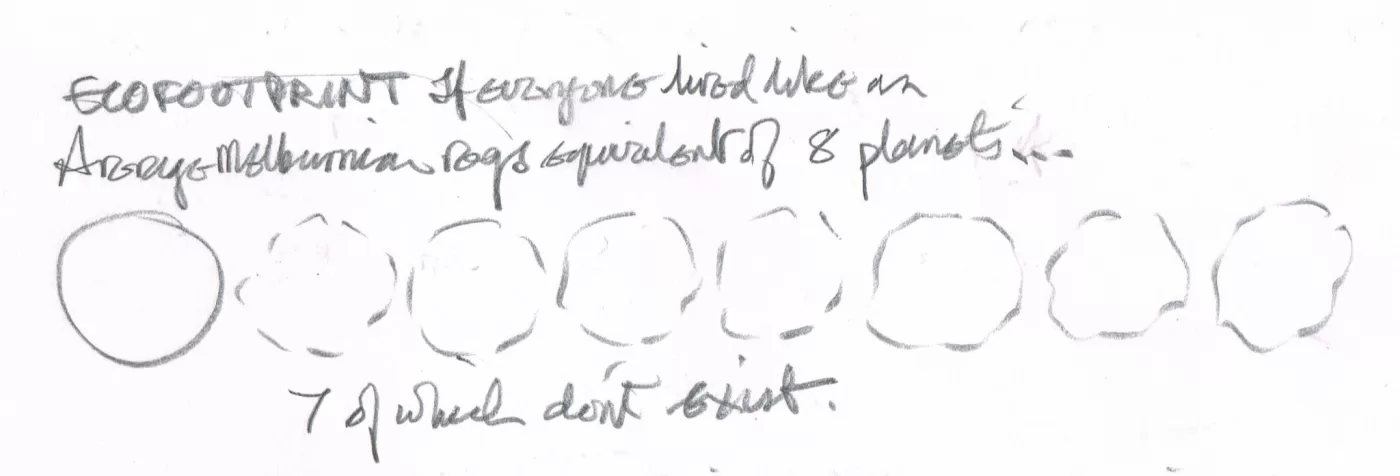 ECOFOOTPRINT If everyone lived like an
Average Melburnian reqs equivalent of 8 planets...
7 of which don't exist.